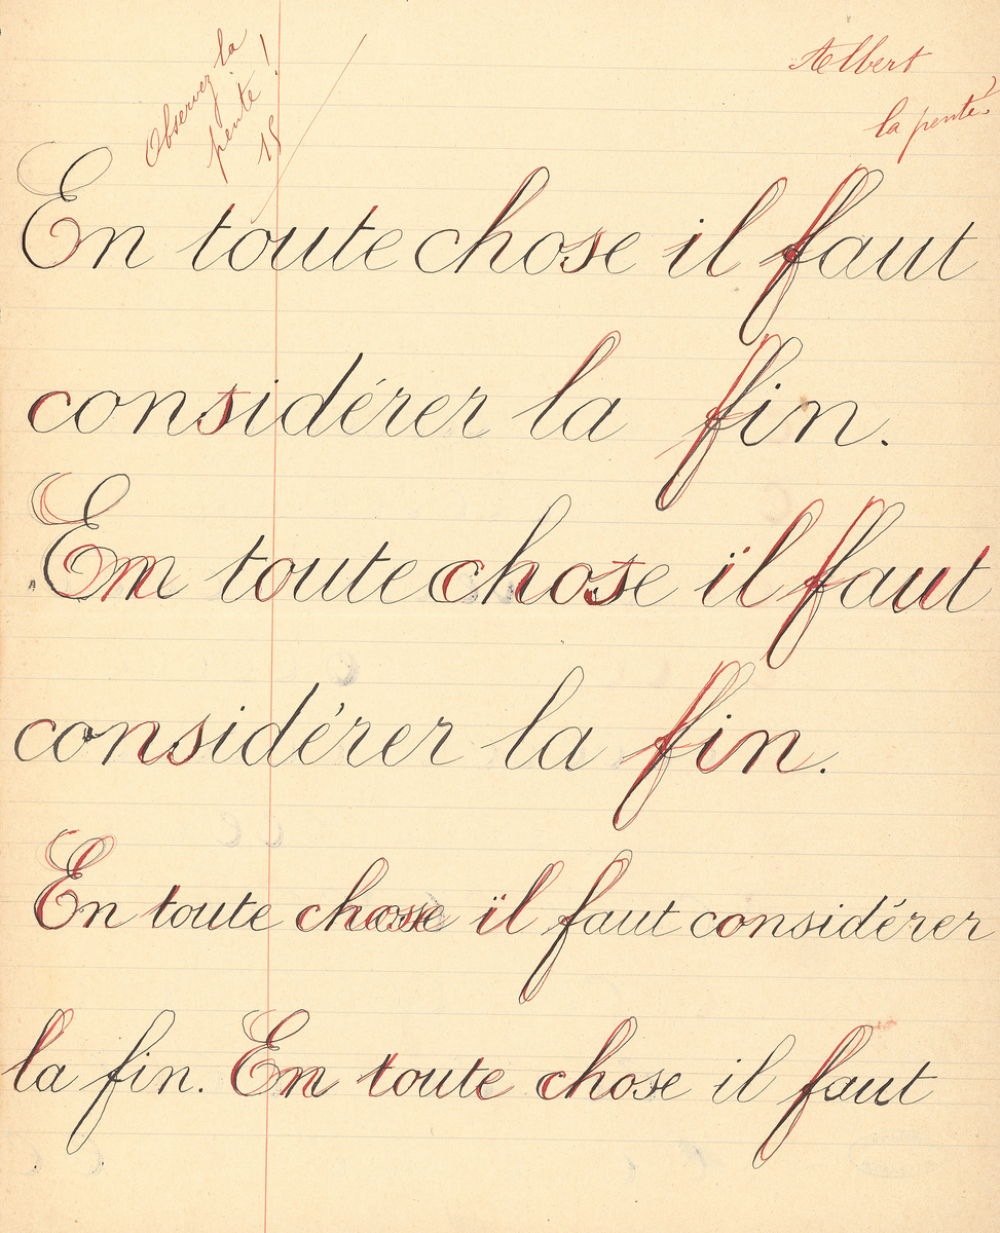 Observez la
pente !
15
Albert
la pente
En toute chose il faut
considérer la fin.
En toute chose il faut
considérer la fin.
En toute chose il faut considérer
la fin. En toute chose il faut